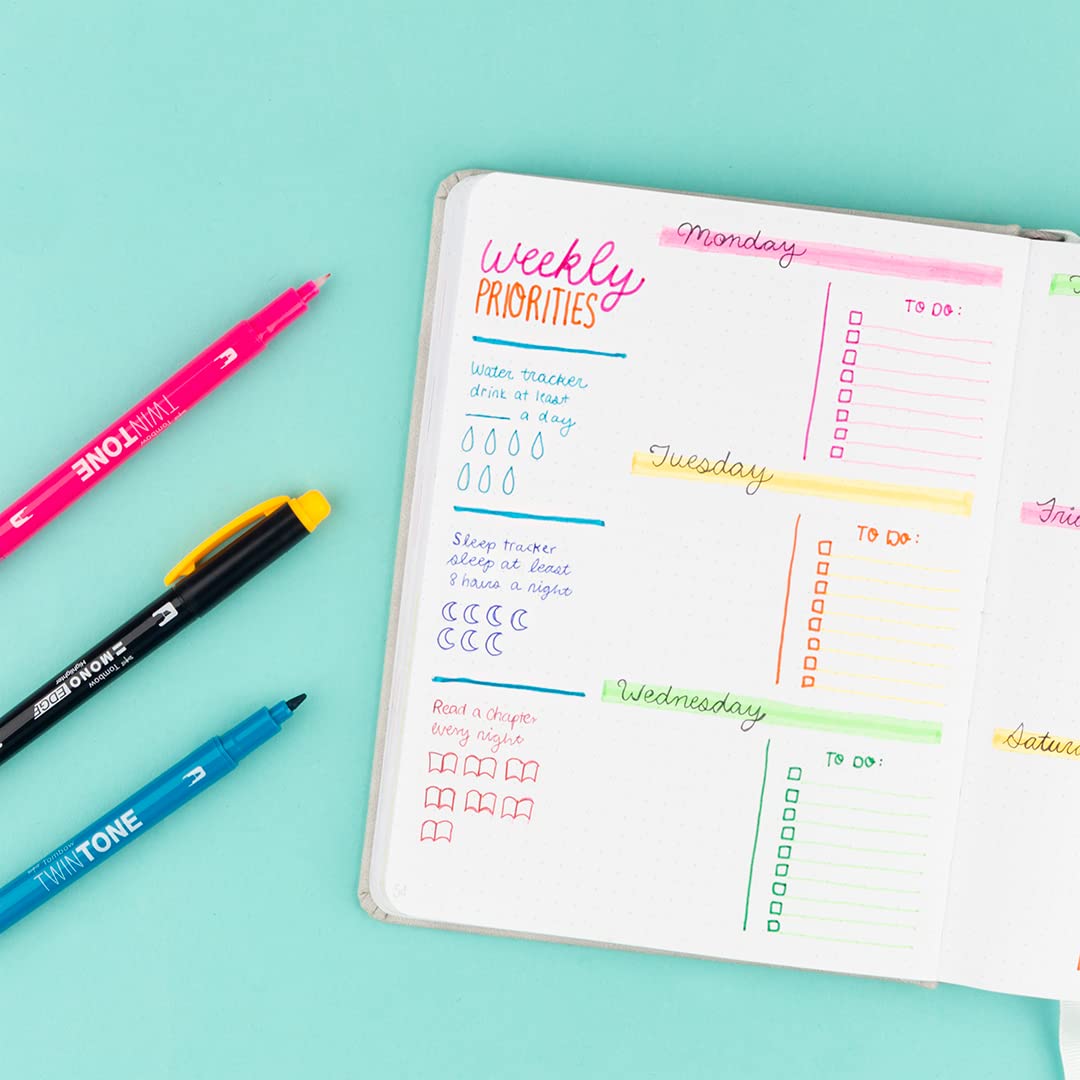 weekly
PRIORITIES
Water tracker
drink at least
____ a day
Sleep tracker
sleep at least
8 hours a night
Read a chapter
every night
Monday
TO DO:
Tuesday
TO DO:
Wednesday
TO DO:
Satur
Tombow
TWINTONE
Tombow
MONO EDGE
Highlighter
Tombow
TWINTONE